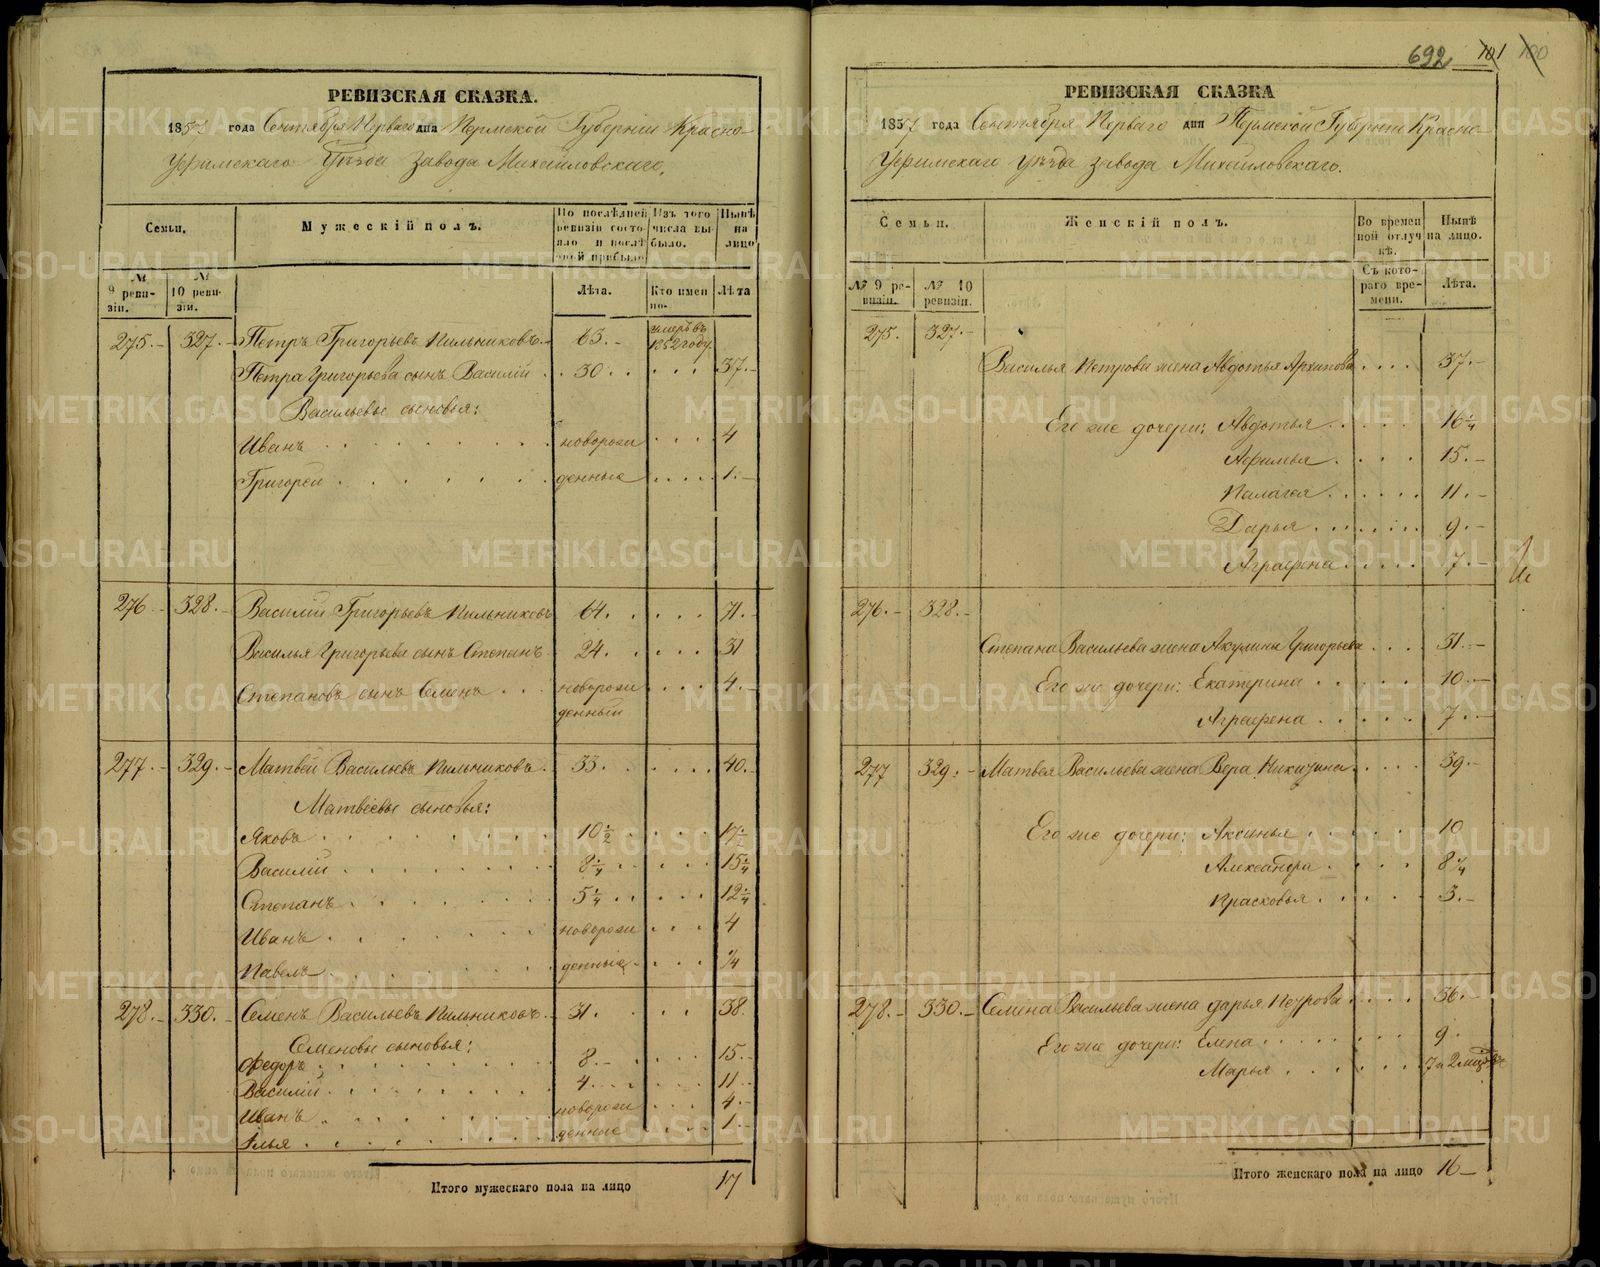 РЕВИЗСКАЯ СКАЗКА.
1857 года Сентября Перваго дня Пермской Губерніи Красно-
Уфимскаго Уѣзда завода Михайловскаго,
Семьи.
Мужескій полъ.
По послѣдней ревизіи состояло и послѣ оной прибыло
Изъ того числа выбыло.
Нынѣ на лицо
№ 9 ревизіи.
№ 10 ревизіи.
Лѣта.
Кто именно.
Лѣта
275.- 327.- Петръ Григорьевъ Пильниковъ.. 63.- умеръ въ 1852 году.
Петра Григорьева сынъ Василій . 30 . . . . 37.-
Васильевы сыновья:
Иванъ . . . . новорож . . . . 4
Григорей . . . . денные . . . . 1.-
276.- 328.- Василій Григорьевъ Пильниковъ 64. . . . . 71.-
Василья Григорьева сынъ Степанъ 24. . . . . 31
Степановъ сынъ Семенъ . . . новорож . . . . 4.-
денный
277.- 329.- Матвей Васильевъ Пильниковъ. 33. . . . . 40.-
Матвѣевы сыновья:
Яковъ . . . . 10½ . . . . 17½
Василій . . . . 8¼ . . . . 15¼
Степанъ . . . . 5¼ . . . . 12¼
Иванъ . . . . новорож . . . . 4
Павелъ . . . . денные . . . . ¼
278.- 330.- Семенъ Васильевъ Пильниковъ. 31. . . . 38.
Семеновы сыновья:
Федоръ . . . . 8.- . . . . 15.-
Василій . . . . 4. . . . 11.-
Иванъ . . . . новорож . . . . 4.-
Илья . . . . денные . . . . 1.-
Итого мужескаго пола на лицо 17
692 101 100
РЕВИЗСКАЯ СКАЗКА
1857 года Сентября Перваго дня Пермской Губерніи Красно-
Уфимскаго уѣзда завода Михайловскаго.
Семьи.
Женскій полъ.
Во временной отлучкѣ.
Нынѣ на лицо.
№ 9 ревизіи.
№ 10 ревизіи.
Съ котораго времени.
Лѣта.
275. 327.-
Василья Петрова жена Авдотья Архипова . . . . 37.-
Его же дочери: Авдотья . . . . 16¼
Афимья . . . . 15.-
Палагея . . . . 11.-
Дарья . . . . 9.-
Аграфена . . . . 7.-
276.- 328.-
Степана Васильева жена Акулина Григорьева . . . . 31.-
Его же дочери: Екатерина . . . . 10.-
Аграфена . . . . 7.-
277 329.- Матвея Васильева жена Вера Никизина . . . . 39.-
Его же дочери: Аксинья . . . . 10
Александра . . . . 8¼
Прасковья . . . . 3.-
278.- 330.- Семена Васильева жена Дарья Петрова . . . . 36.-
Его же дочери: Елена . . . . 9.
Марья . . . . 7 и 2
Итого женскаго пола на лицо 16-
METRIKI.GASO-URAL.RU